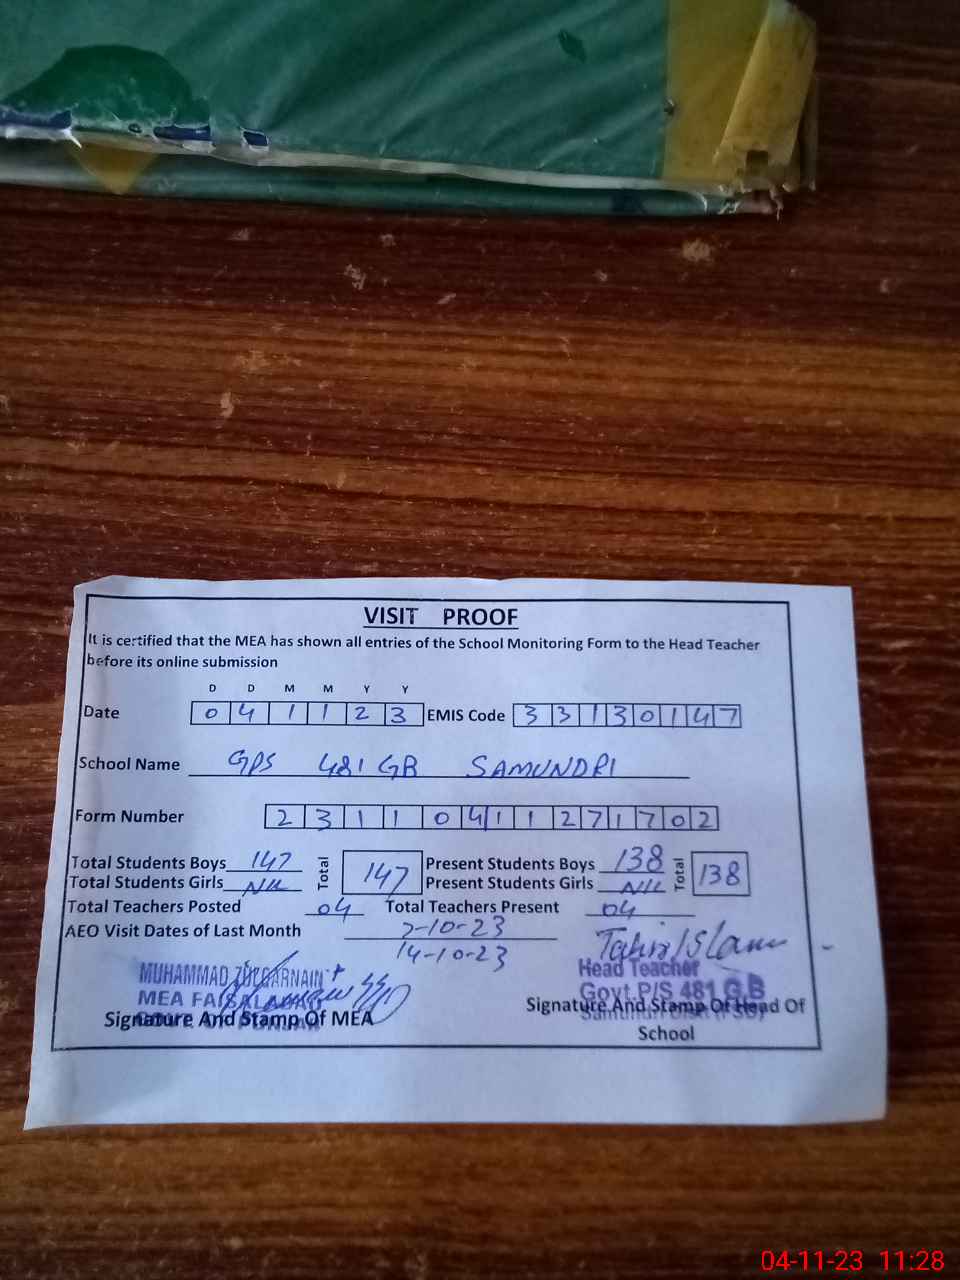 VISIT PROOF
It is certified that the MEA has shown all entries of the School Monitoring Form to the Head Teacher
before its online submission
D D M M Y Y
Date 0 4 1 1 2 3 EMIS Code 3 3 1 3 0 1 4 7
School Name GPS 481 GB SAMUNDRI
Form Number 2 3 1 1 0 4 1 1 2 7 1 7 0 2
Total Students Boys 147 Total 147 Present Students Boys 138 Total 138
Total Students Girls Nil Present Students Girls Nil
Total Teachers Posted 04 Total Teachers Present 04
AEO Visit Dates of Last Month 2-10-23
14-10-23
Tahir Islam
MUHAMMAD ZULQARNAIN
MEA FAISALABAD
Head Teacher
Govt P/S 481 G.B
Signature And Stamp Of MEA
Signature And Stamp Of Head Of
School
04-11-23 11:28